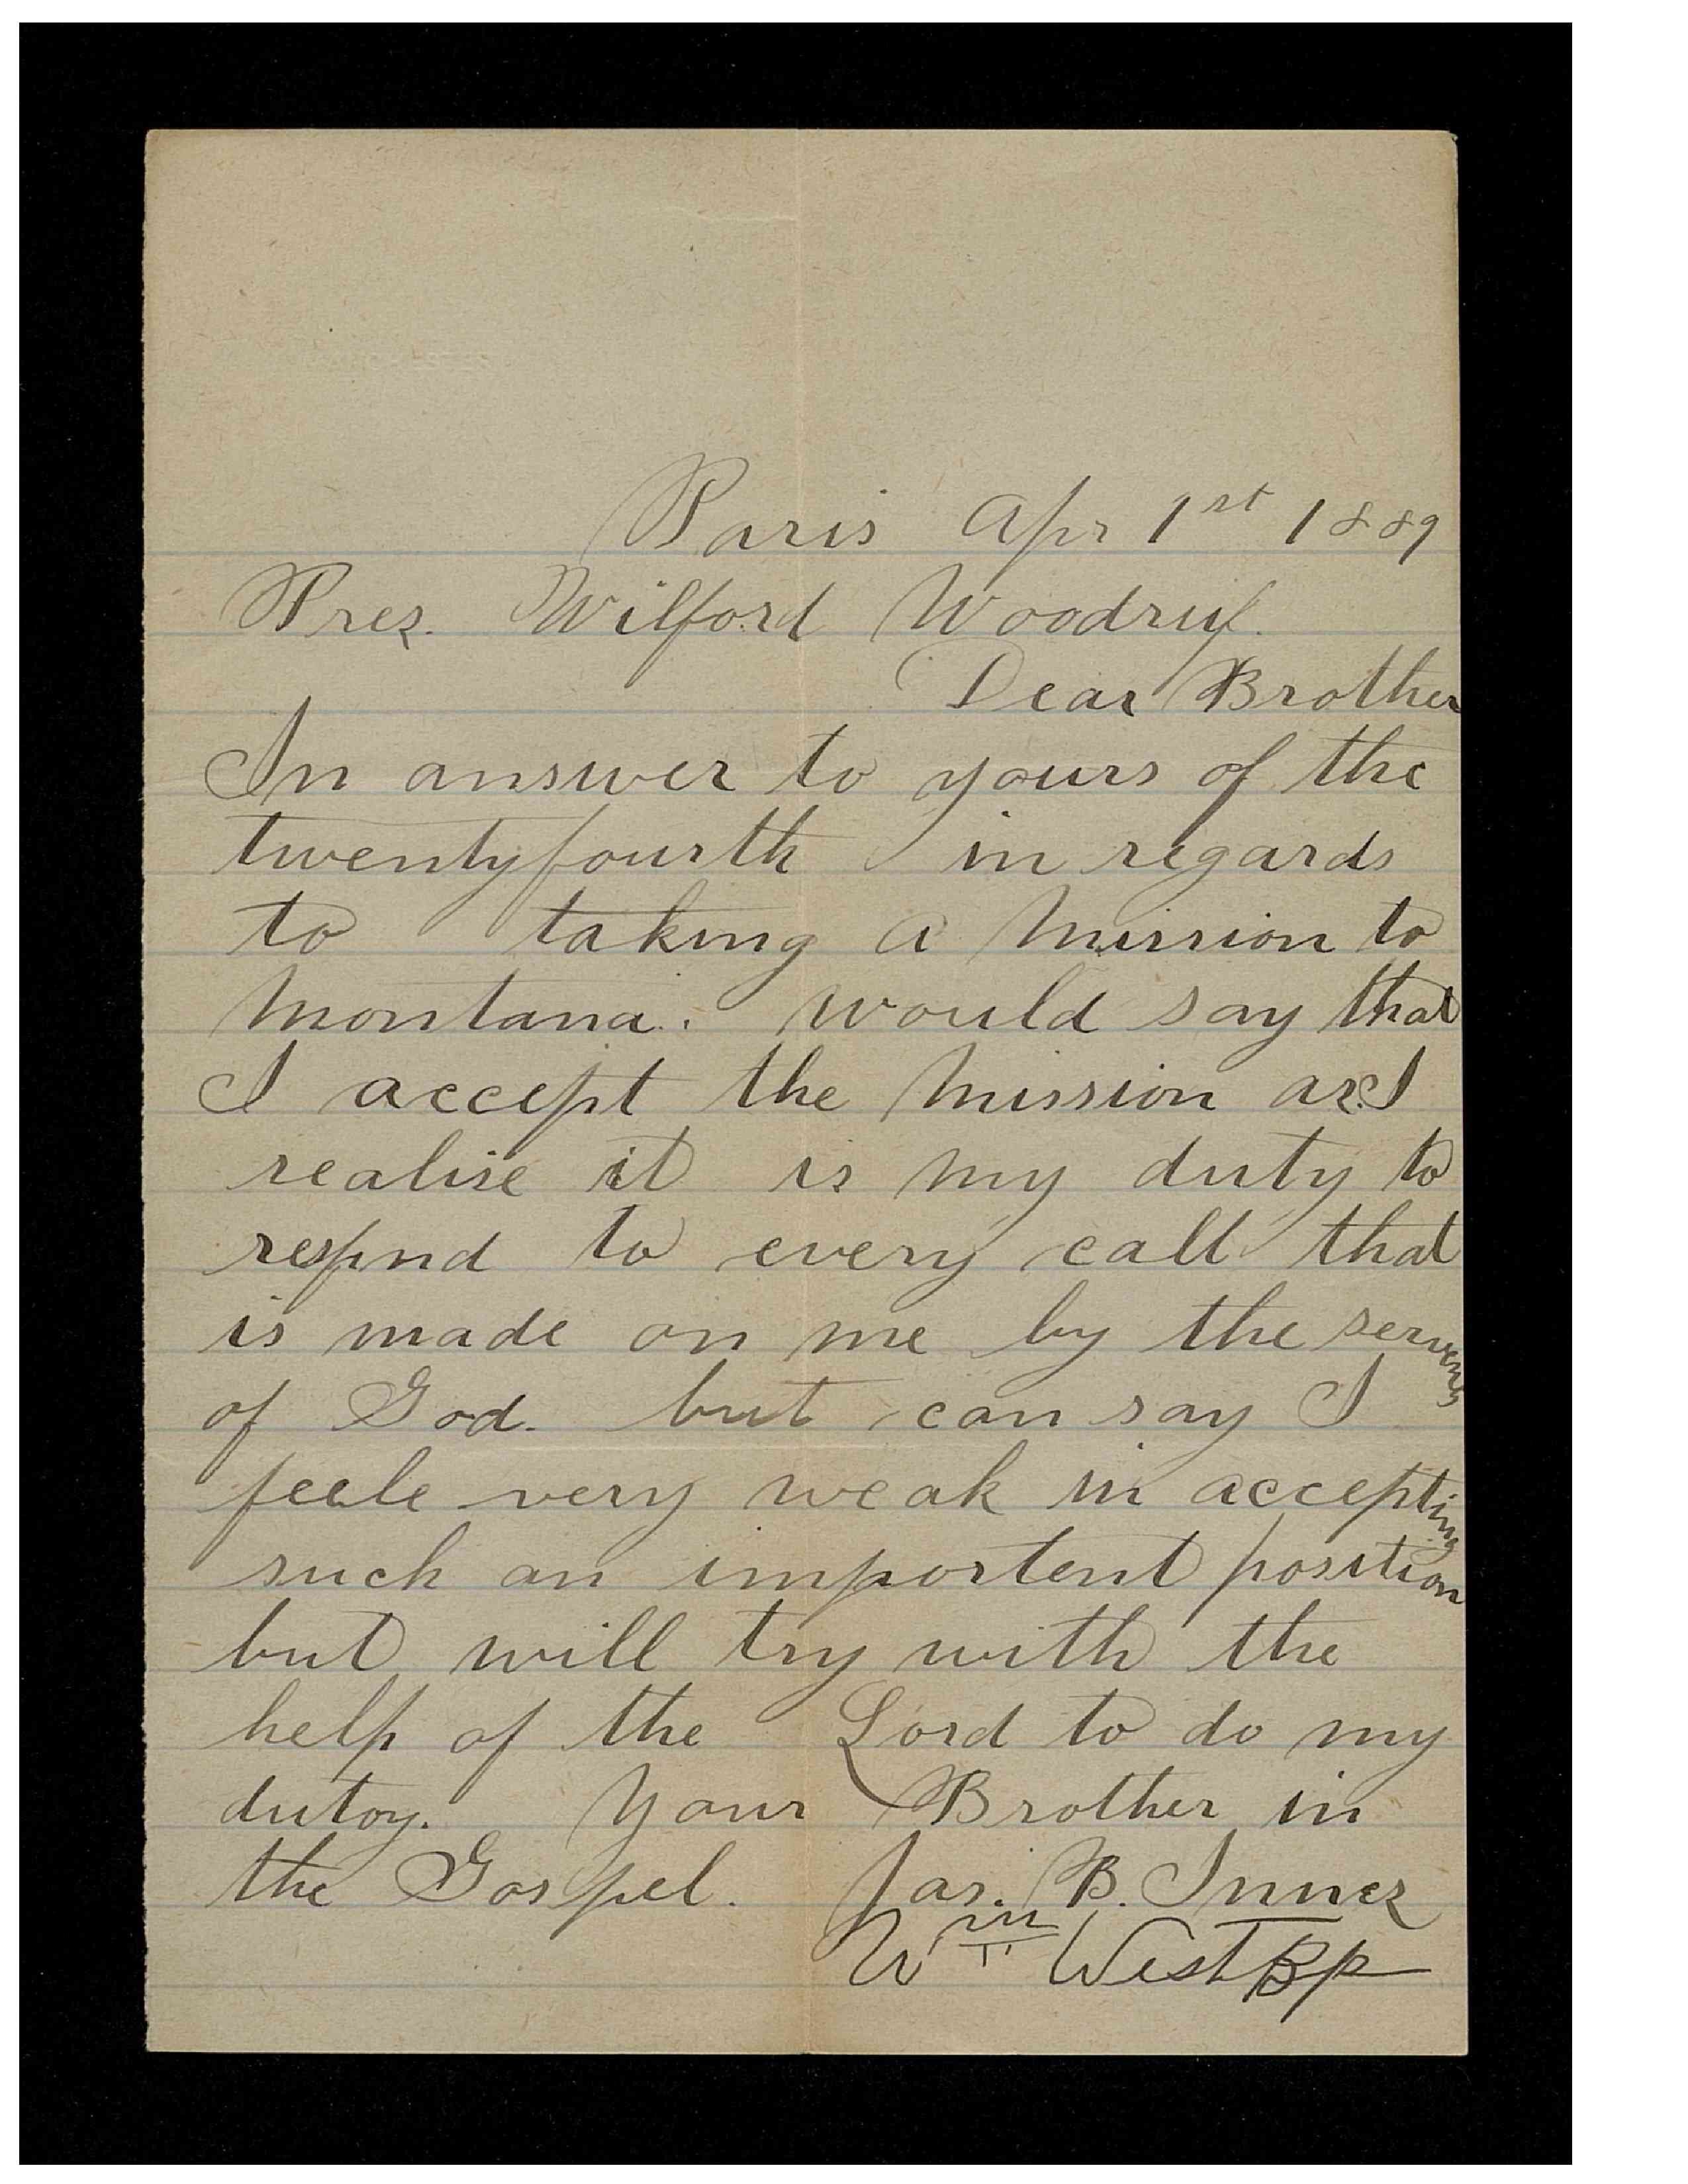 Paris Apr 1st 1889
Pres. Wilford Woodruf.
Dear Brother
In answer to yours of the
twentyfourth in regards
to taking a Mission to
Montana. would say that
I accept the Mission as I
realise it is my duty to
respnd to every call that
is made on me by the servents
of God. but can say I
feele very weak in accepting
such an important position
but will try with the
help of the Lord to do my
dutoy. Your Brother in
the Gospel. Jas. B. Innes
Wm West Bp